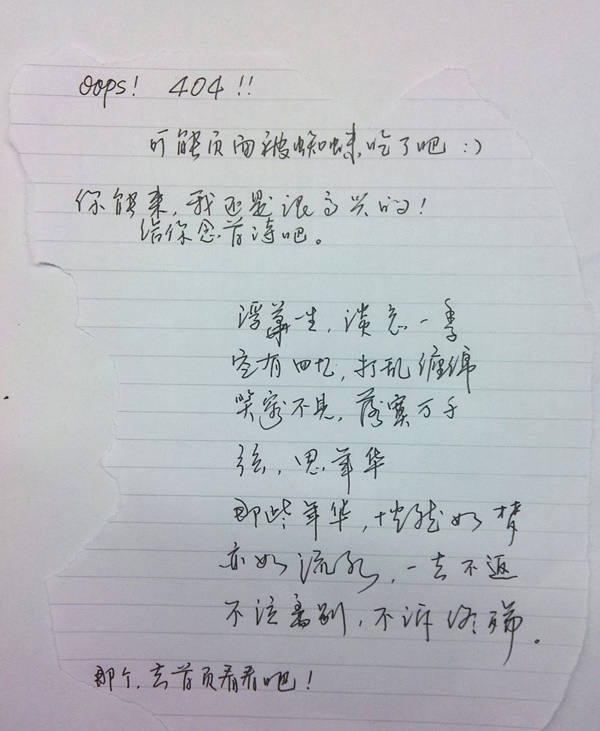 Oops! 404!!
可能页面被蜘蛛吃了吧 :)
你能来，我还是很高兴的！
给你念首诗吧。
浮华一生，淡忘一季
空有回忆，打乱缠绵
笑容不见，落寞万千
弦，思年华
那些年华，恍然如梦
亦如流水，一去不返
不泣离别，不诉终殇。
那个，去首页看看吧！